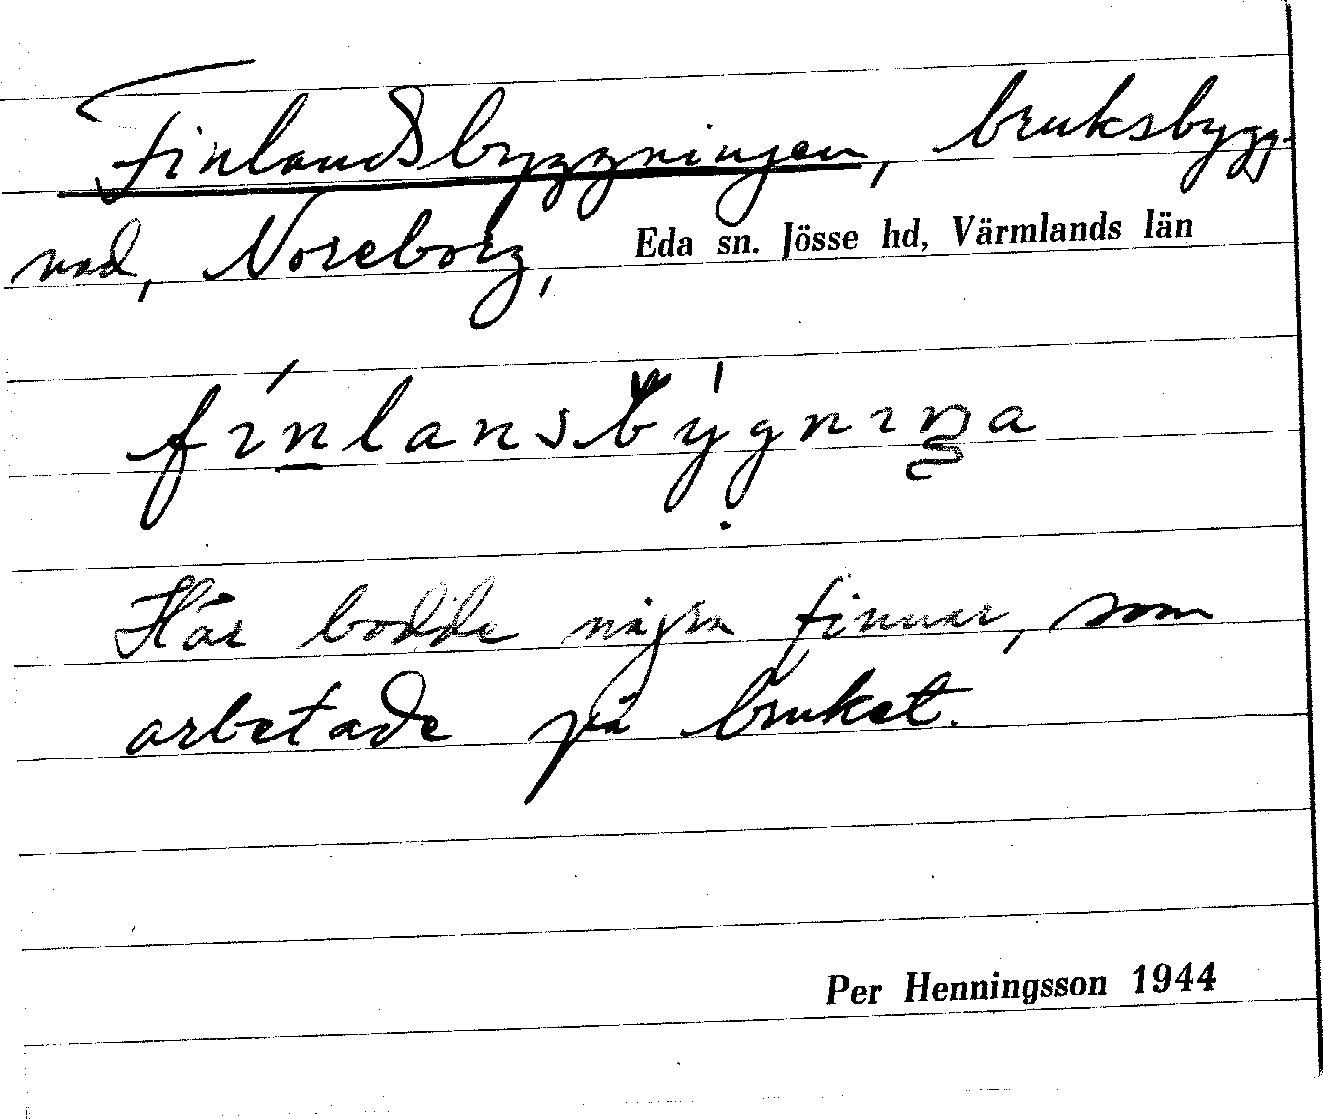 Finlandsbyggningen, bruksbygg-
nad, Noreborg, Eda sn. Jösse hd, Värmlands län
fínlansby̍gnıŋa
Här bodde några finnar, som
arbetade på bruket.
Per Henningsson 1944